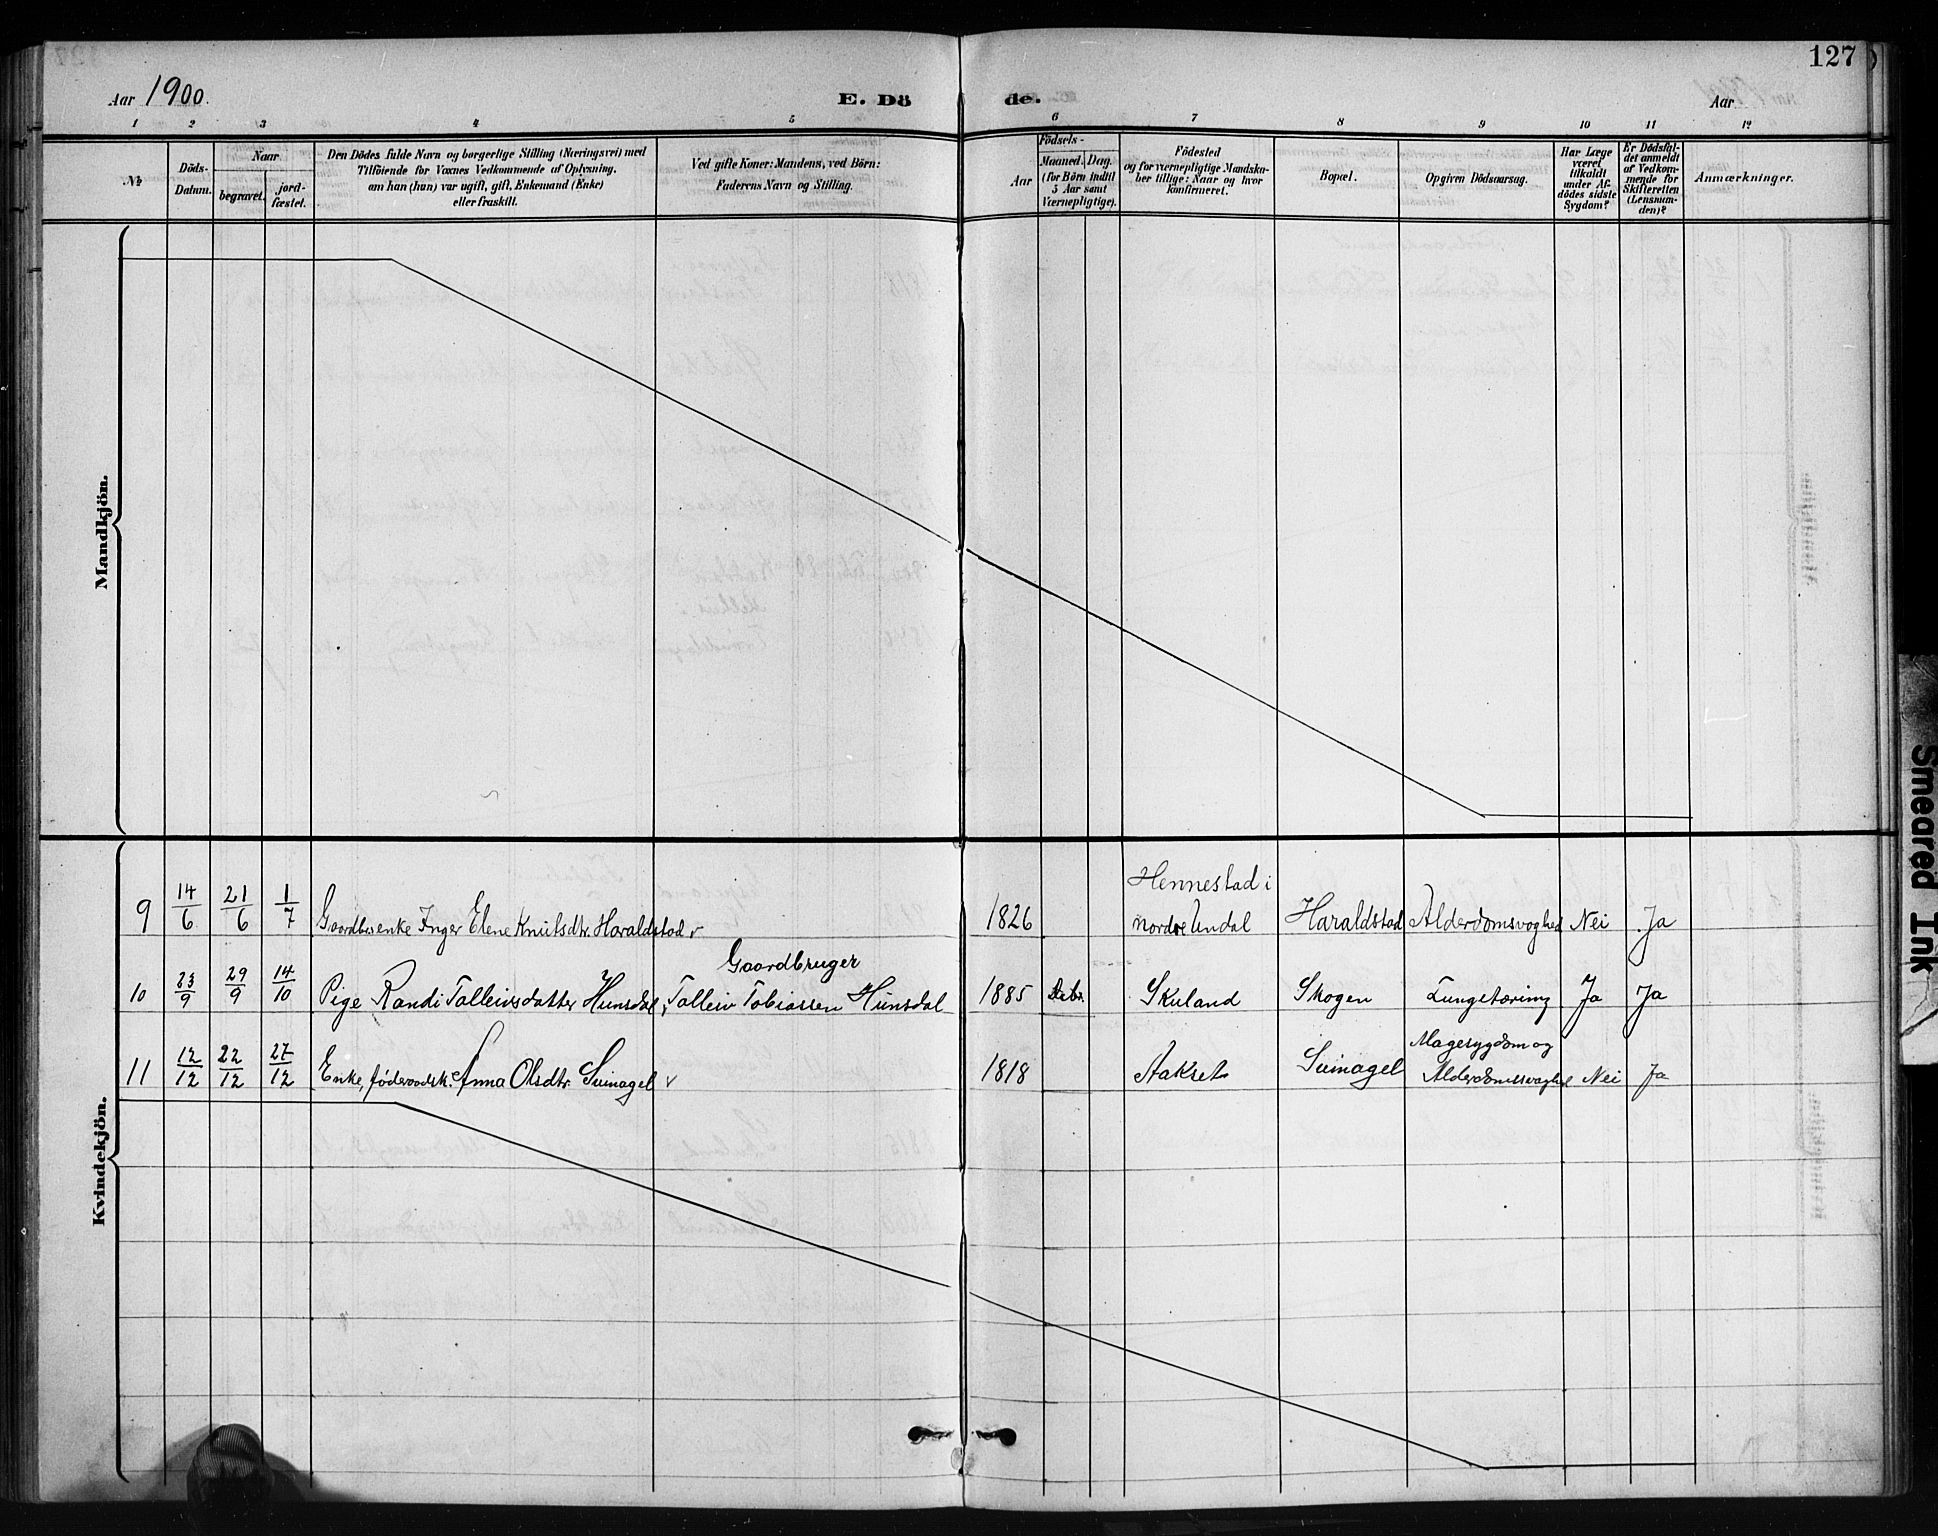 127
Aar 1900.
E. Dö de.
Aar
1 2 3 4 5 6 7 8 9 10 11 12
№
Döds-
Datum.
Naar
begravet.
jord-
fæstet.
Den Dödes fulde Navn og borgerlige Stilling (Næringsvei) med
Tilföiende for Voxnes Vedkommende af Oplysning,
om han (hun) var ugift, gift, Enkemand (Enke)
eller fraskilt.
Ved gifte Koner: Mandens, ved Börn:
Faderens Navn og Stilling.
Födsels-
Aar
Maaned.
Dag.
(for Börn indtil
5 Aar samt
Værnepligtige).
Födested
og for værnepligtige Mandska-
ber tillige: Naar og hvor
konfirmeret.
Bopæl.
Opgiven Dödsaarsag.
Har Læge
været
tilkaldt
under Af-
dödes sidste
Sygdom?
Er Dödsfal-
det anmeldt
af Vedkom-
mende for
Skifteretten
(Lensman-
den)?
Anmærkninger.
Mandkjön.
Kvindekjön.
9 14/6 21/6 1/7 Gaardbrsenke Inger Elene Knutsdtr. Haraldstad 1826 Hennestad i
nordre Undal Haraldstad Alderdomsvaghed Nei Ja
10 23/9 29/9 14/10 Pige Randi Talleivsdatter Hunsdal, Gaardbruger
Talleiv Tobiassen Hunsdal 1885 Skuland Skogen Lungetæring Ja Ja
11 12/12 22/12 27/12 Enke, föderaadsk. Anna Olsdtr. Svinagel 1818 Aakset Svinagel Mavesygdom og
Alderdomssvaghed Nei Ja
Smeared Ink